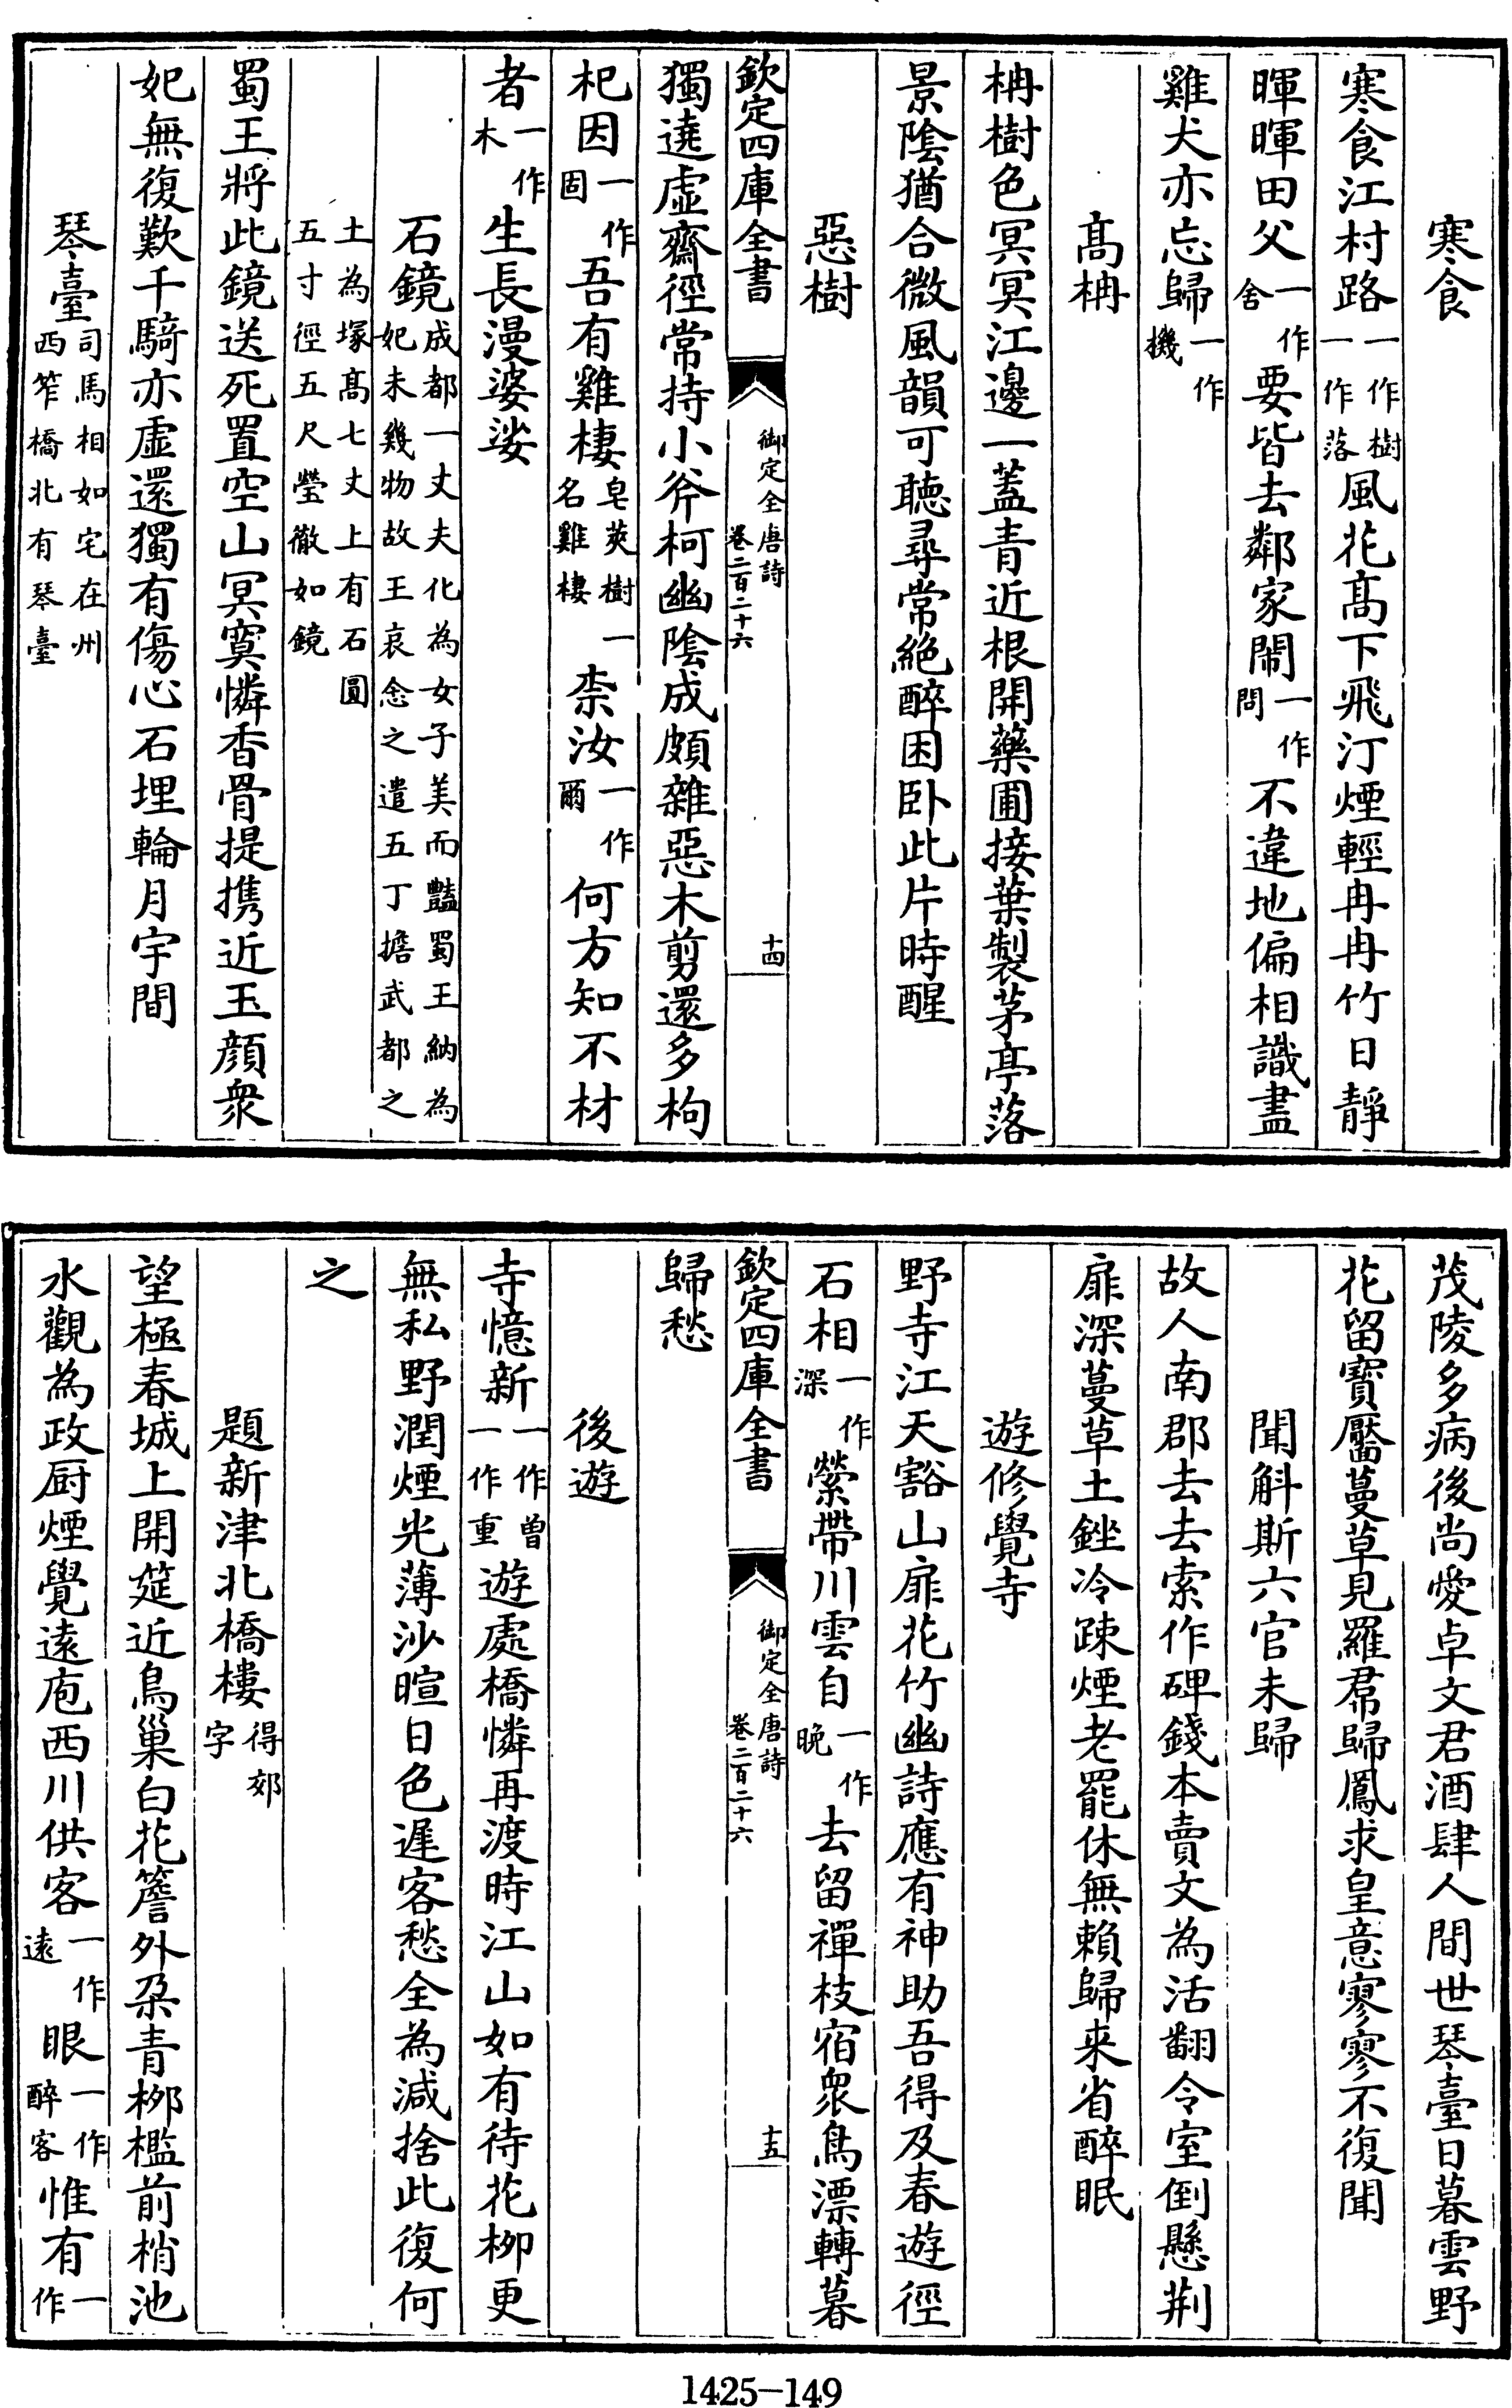 寒食
寒食江村路一作樹一作落風花髙下飛汀煙輕冉冉竹日靜
暉暉田父一作舍要皆去鄰家閙一作問不違地偏相識盡
雞犬亦忘歸一作機
髙柟
柟樹色冥冥江邊一蓋青近根開藥圃接葉製茅亭落
景陰猶合微風韻可聴尋常絶醉困卧此片時醒
惡樹
欽定四庫全書
御定全唐詩
卷二百二十六
十四
獨遶虚齋徑常持小斧柯幽陰成頗雜惡木剪還多枸
杞因一作固吾有雞棲皂莢樹一名雞棲柰汝一作爾何方知不材
者一作木生長漫婆娑
石鏡成都一丈夫化為女子美而豔蜀王納為妃未幾物故王哀念之遣五丁擔武都之
土為塚髙七丈上有石圓五寸徑五尺瑩徹如鏡
蜀王將此鏡送死置空山冥寞憐香骨提携近玉顔衆
妃無復歎千騎亦虚還獨有傷心石埋輪月宇間
琴臺司馬相如宅在州西笮橋北有琴臺
茂陵多病後尚愛卓文君酒肆人間世琴臺日暮雲野
花留寳靨蔓草見羅帬歸鳳求皇意寥寥不復聞
聞斛斯六官未歸
故人南郡去去索作碑錢本賣文為活翻令室倒懸荆
扉深蔓草土銼冷疎煙老罷休無賴歸来省醉眠
遊修覺寺
野寺江天豁山扉花竹幽詩應有神助吾得及春遊徑
石相一作深縈帶川雲自一作晩去留禪枝宿衆鳥漂轉暮
欽定四庫全書
御定全唐詩
卷二百二十六
十五
歸愁
後遊
寺憶新一作曽一作重遊處橋憐再渡時江山如有待花栁更
無私野潤煙光薄沙暄日色遲客愁全為減捨此復何
之
題新津北橋樓得郊字
望極春城上開筵近鳥巢白花簷外朶青栁檻前梢池
水觀為政厨煙覺逺庖西川供客一作逺眼一作醉客惟有一作
1425-149